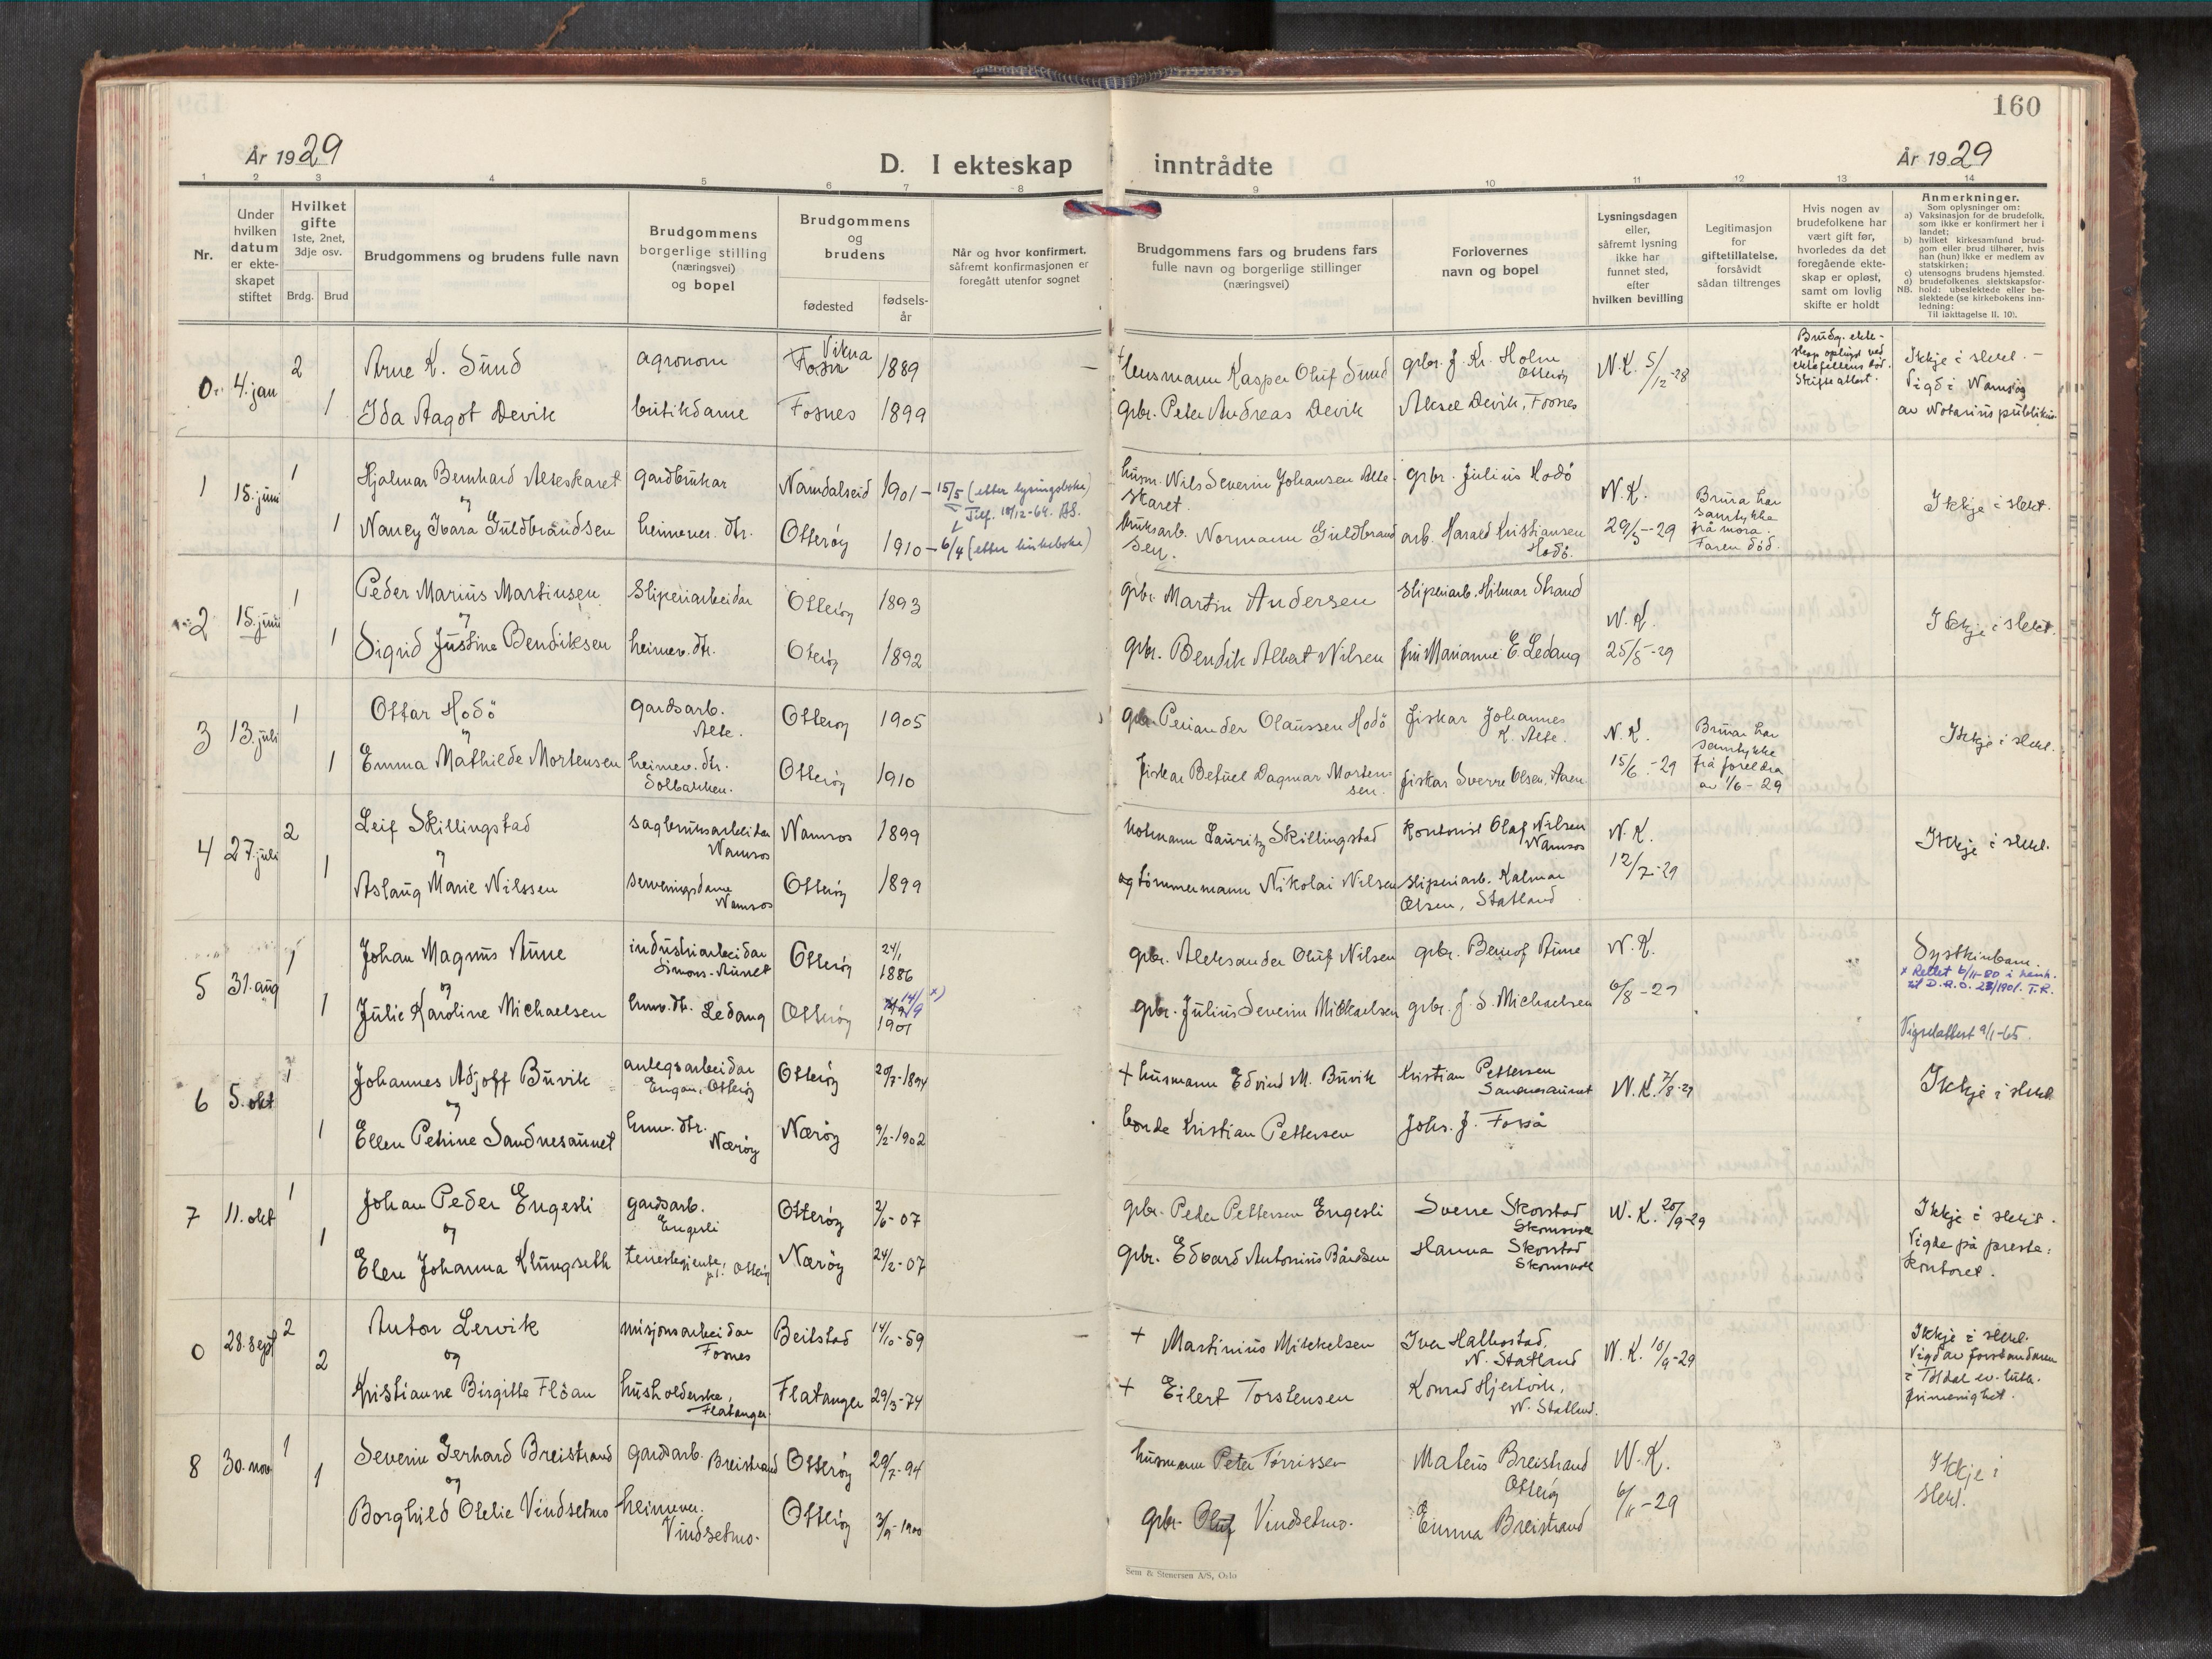 160
År 1929
D. I ekteskap inntrådte
År 1929
1 2 3 4 5 6 7 8 9 10 11 12 13 14
Nr.
Under hvilken datum er ekteskapet stiftet
Hvilket gifte 1ste, 2net, 3dje osv.
Brdg. Brud
Brudgommens og brudens fulle navn
Brudgommens borgerlige stilling (næringsvei) og bopel
Brudgommens og brudens
fødested
fødselsår
Når og hvor konfirmert. såfremt konfirmasjonen er foregått utenfor sognet
Brudgommens fars og brudens fars fulle navn og borgerlige stillinger (næringsvei)
Forlovernes navn og bopel
Lysningsdagen eller, såfremt lysning ikke har funnet sted, efter hvilken bevilling
Legitimasjon for giftetillatelse, forsåvidt sådan tiltrenges
Hvis nogen av brudefolkene har vært gift før, hvorledes da det foregående ekteskap er opløst, samt om lovlig skifte er holdt
Anmerkninger.
Som oplysninger om:
a) Vaksinasjon for de brudefolk, som ikke er konfirmert her i landet;
b) hvilket kirkesamfund brudgom eller brud tilhører, hvis han (hun) ikke er medlem av statskirken;
c) utensogns brudens hjemsted.
d) brudefolkenes slektskapsforhold: ubeslektede eller beslektede (se kirkebokens innledning:
NB.
Til iakttagelse II. 10).
0. 4. jan 2 Arne K. Sund agronom Vikna 1889 – + lensmann Kasper Oluf Sund grbr. J. Kr. Holm Otterøy N.K. 5/12-28 Brudg. ekteskap opløyst ved ektefellens død. Skifteattest. Ikkje i slekt. –
1 Ida Aagot Devik butikdame Fosnes 1899 grbr. Peter Andreas Devik Aksel Devik, Fosnes Vigd i Namsos av Notarius publikus
1 15. juni 1 Hjalmar Bernhard Alteskaret gardbrukar Namdalseid 1901 – 15/5 (etter lysingsboka) husm. Nils Severin Johansen Alteskaret. grbr. Julius Hodö N.K. Ikkje i slekt.
og
Tilf. 18/12-64. AS.
1 Nancy Ivara Guldbrandsen heimever. dtr. Otterøy 1910 – 6/4 (etter kirkeboka) bruksarb. Normann Guldbrandsen. arb. Harald Kristiansen Hodö. 29/5-29 Brura har samtykke frå mora Faren död.
2 15. juni 1 Peder Marius Martinsen Sliperiarbeidar Otterøy 1893 grbr. Martin Andersen Sliperiarb. Hilmar Strand N.K. Ikkje i slekt.
og
1 Sigrid Justine Bendiksen heimev. dtr. Oterøy 1892 grbr. Bendik Albert Nilsen fru Marianne E. Ledang 25/5-29
3 13. juli 1 Ottar Hodö gardsarb. Alte. Otterøy 1905 grbr. Periander Olaussen Hodö fiskar Johannes K. Alte. N.K. Brura har samtykke frå foreldra av 1/6-29 Ikkje i slekt.
og
1 Emma Mathilde Mortensen heimev. dtr. Solbakken. Otterøy 1910 fiskar Betuel Dagmar Mortensen. fiskar Sverre Olsen, Aaen 15/6-29
4 27. juli 2 Leif Skillingstad sagbruksarbeidar Namsos Namsos 1899 Lauritz Skillingstad Kontorist Olaf Nilsen Namsos N.K. Ikkje i slekt.
og
1 Aslaug Marie Nilssen serveringsdame Namsos Otterøy 1899 og tömmermann Nikolai Nilsen Sliperiarb. Kalmar Olsen, Statland 12/7-29
5 31. aug 1 Johan Magnus Aune industriarbeidar Simons-Aunet Otterøy 24/1 1886 grbr. Aleksander Oluf Nilsen grbr. Bernof Aune N.K. Systkinbarn.
og
x Rettet 6/11-80 i henh. til D.R.O. 23/1901. T.R.
1 Julie Karoline Michaelsen heimv. dtr. Ledang Otterøy 14/9 x) 1901 grbr. Julius Severin Mikkaelsen grbr. J. S. Michaelsen 6/8-29
Vigselattest 9/1-65.
6 5. okt 1 Johannes Adjoff Buvik anlegsarbeidar Engan, Otterøy Otterøy 20/7-1894 + husmann Edvind M. Buvik Kristian Pettersen Sandnesaunet N.K. 7/8-29 Ikkje i slekt.
og
1 Ellen Petrine Sandnesaunet heimv. dtr. Nærøy Nærøy 9/2-1902 bonde Kristian Pettersen Johs. J. Forså
7 11. okt 1 Johan Peder Engesli gardsarb. Engesli Otterøy 2/6-07 grbr. Peder Pettersen Engesli Sverre Skorstad N.K. 20/9-29 Ikkje i slekt.
og
1 Elen Johanna Klungseth tenestegjente, Otterøy Nærøy 24/2-07 grbr. Edvard Antonius Bårdsen Hanna Skorstad Vigde på prestekontoret.
0 28. sept 2 Anton Lervik misjonsarbeidar Fosnes Beitstad 14/10-59 – + Martinius Mikkelsen Iver Halbostad, N. Statland N.K. 10/9-29 Ikkje i slekt. Vigd av forstandaren i
og
2 Kristianne Birgitte Flöan husholderske, Flatanger Flatanger 29/3-74 + Eilert Torstensen Konrad Hjertvik, N. Statland. ev. luth. frimenighet.
8 30. nov 1 Severin Gerhard Breistrand gardsarb. Breistrand Otterøy 29/7-94 husmann Peter Tørrissen Mateus Breistrand Otterøy N.K. Ikkje i slekt.
og
1 Borghild Otelie Vindsetmo heimever. Vindsetmo. Otterøy 3/9-1900 grbr. Oluf Vindsetmo. Emma Breistrand 6/11-29
Sem & Stenersen A/S, Oslo